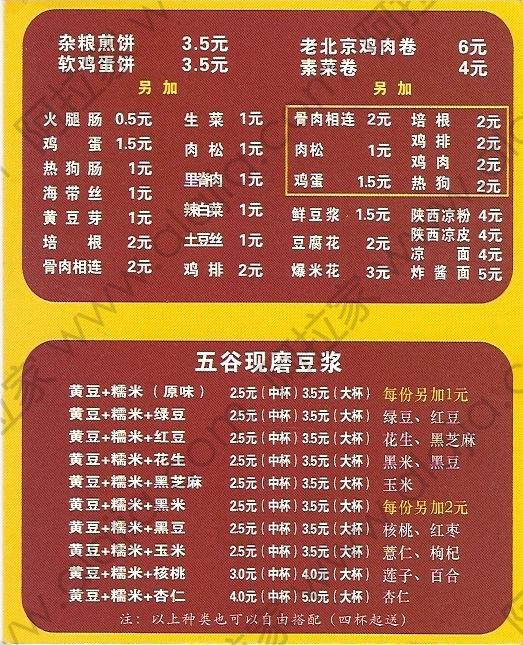 杂粮煎饼 3.5元
软鸡蛋饼 3.5元
另加
火腿肠 0.5元 生菜 1元
鸡蛋 1.5元 肉松 1元
热狗肠 1元 里脊肉 1元
海带丝 1元 辣白菜 1元
黄豆芽 1元 土豆丝 1元
培根 2元 鸡排 2元
骨肉相连 2元
老北京鸡肉卷 6元
素菜卷 4元
另加
骨肉相连 2元 培根 2元
肉松 1元 鸡排 2元
鸡蛋 1.5元 鸡肉 2元
热狗 2元
鲜豆浆 1.5元 陕西凉粉 4元
豆腐花 2元 陕西凉皮 4元
爆米花 3元 凉面 4元
炸酱面 5元
五谷现磨豆浆
黄豆+糯米(原味) 2.5元(中杯) 3.5元(大杯) 每份另加1元
黄豆+糯米+绿豆 2.5元(中杯) 3.5元(大杯) 绿豆、红豆
黄豆+糯米+红豆 2.5元(中杯) 3.5元(大杯) 花生、黑芝麻
黄豆+糯米+花生 2.5元(中杯) 3.5元(大杯) 黑米、黑豆
黄豆+糯米+黑芝麻 2.5元(中杯) 3.5元(大杯) 玉米
黄豆+糯米+黑米 2.5元(中杯) 3.5元(大杯) 每份另加2元
黄豆+糯米+黑豆 2.5元(中杯) 3.5元(大杯) 核桃、红枣
黄豆+糯米+玉米 2.5元(中杯) 3.5元(大杯) 薏仁、枸杞
黄豆+糯米+核桃 3.0元(中杯) 4.0元(大杯) 莲子、百合
黄豆+糯米+杏仁 4.0元(中杯) 5.0元(大杯) 杏仁
注:以上种类也可以自由搭配(四杯起送)